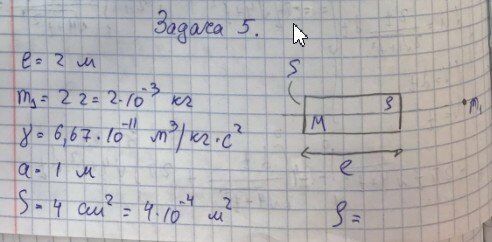 Задача 5.
l = 2 м
m₁ = 2 г = 2·10⁻³ кг
γ = 6,67·10⁻¹¹ м³/кг·с²
a = 1 м
S = 4 см² = 4·10⁻⁴ м²
S
ρ
M
m₁
l
ρ =